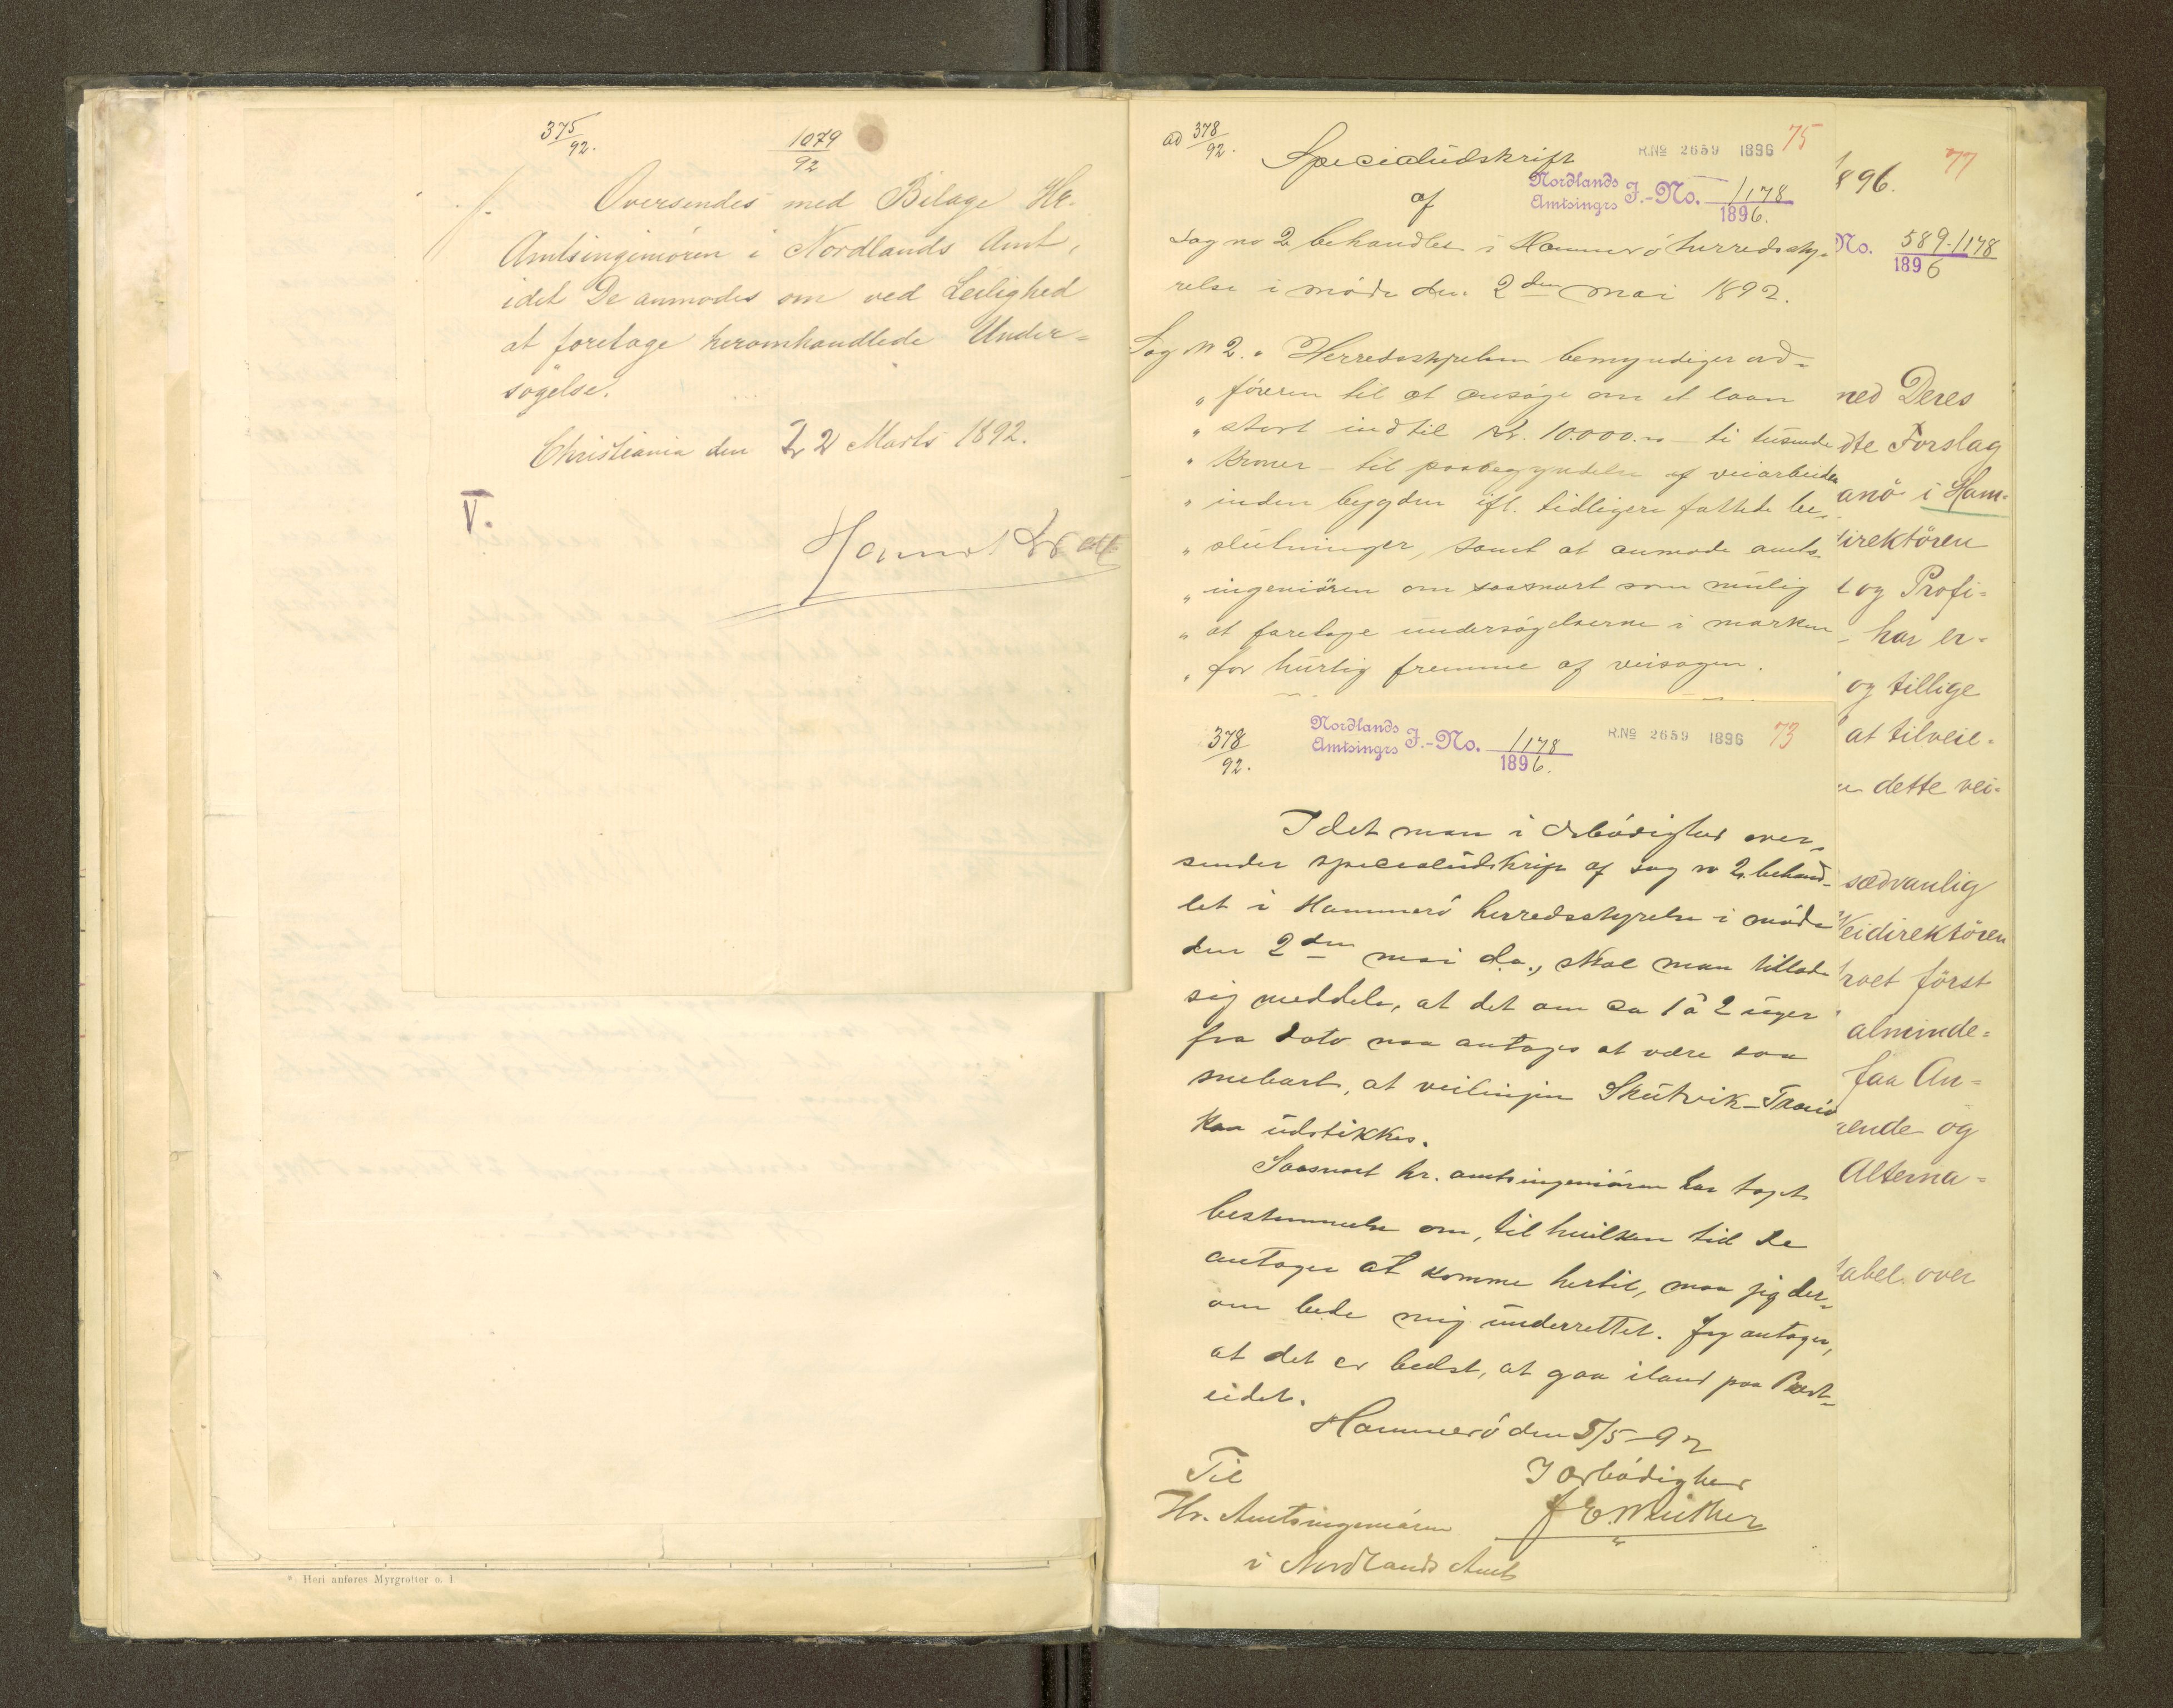 375/92.
1079/92
Oversendes med Bilage Hr.
Amtsingeniören i Nordlands Amt,
idet De anmodes om ved Leilighed
at foretage heromhandlede Under=
sögelse.
Christiania den 22 Marts 1892.
V.
* Heri anføres Myrgrøfter o. l.
ad 378/92.
Specialudskrift
R.No 2659 1896 75
af
Nordlands Amtsingrs J.-No. 1178/1896.
sag no 2 behandlet i Hammerö herredssty-
relse i möde den 2den mai 1892.
Sag No 2. " Herredsstyrelsen bemyndiger ord-
" föreren til at ansöge om et laan
" stort indtil Kr. 10.000.00 - ti tusinde
" Kroner - til paabegyndelse af veiarbeider
" inden bygden ifl. tidligere fattede be-
" slutninger, samt at anmode amts-
" ingeniören om saasnart som mulig
" at foretage undersögelserne i marken
" for hurtig fremme af veisagen.
378/92.
Nordlands Amtsingrs J.-No. 1178/1896.
R.No 2659 1896 73
Idet man i ærbödighed over-
sender specialudskrift af sag no 2, behand-
let i Hammerö herredsstyrelse i möde
den 2den mai d.a., skal man tillade
sig meddele, at det om ca 1 à 2 uger
fra dato maa antages at være saa
snebart, at veilinjen Skutvik-Tranö
kan udstikkes.
Saasnart hr. amtsingeniören har taget
bestemmelse om, til hvilken tid De
antager at komme hertil, maa jeg der-
om bede mig underrettet. Jeg antager,
at det er bedst, at gaa iland paa Prest-
eidet.
Hammerö den 5/5-92
I ærbödighed
Til
Hr. Amtsingeniören
i Nordlands Amt
896.
77
No. 589.1178/1896
med Deres
dte Forslag
anö i Ham=
direktören
t og Profi=
har er=
og tillige
at tilveie=
dette vei=
sædvanlig
Veidirektören
rvet först
alminde=
faa An=
ende og
Alterna=
tabel over